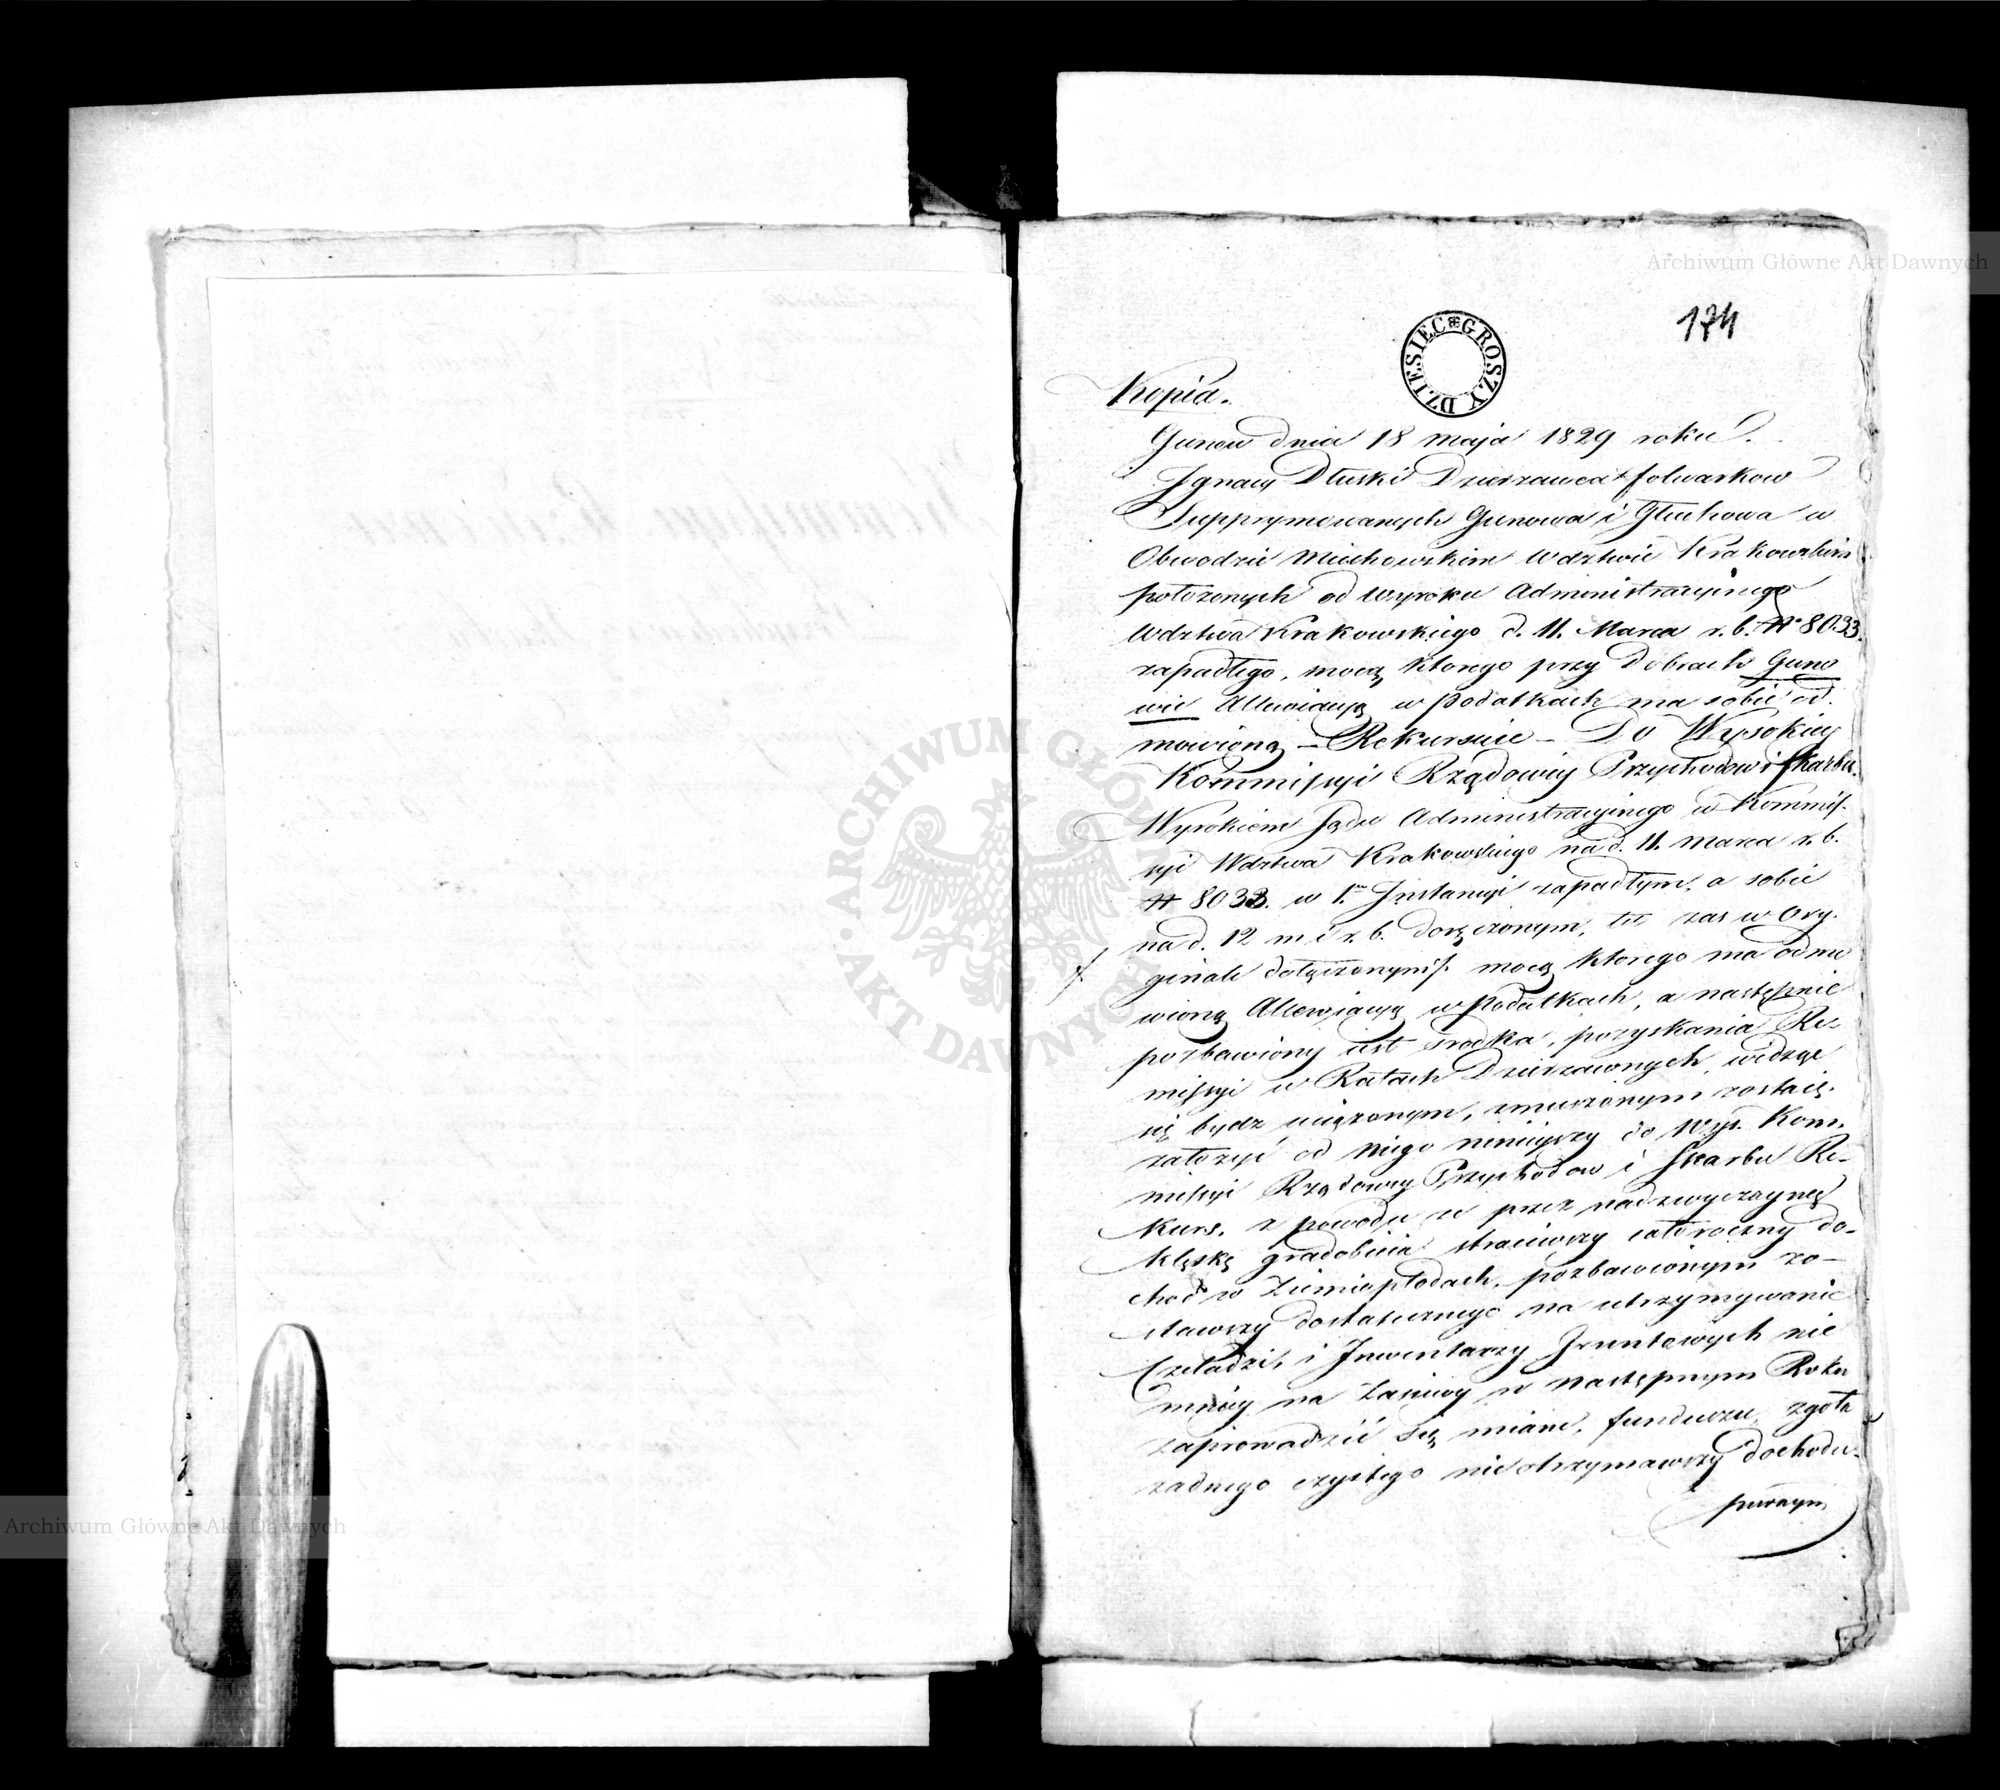 Archiwum Główne Akt Dawnych
174
DZIESIEC GROSZY
Kopia.
Gunów dnia 18 maja 1829 roku.
Ignacy Dłuski Dzierzawca folwarkow
Supprymowanych Gunowa i Głuchowa w
Obwodzie Miechowskim Wdztwie Krakowskim
położonych od wyroku Administracyinego
Wdztwa Krakowskiego d. 11. Marca r. b. N 8033.
zapadłego, mocą ktorego przy Dobrach Guno
wie Allewiacyą w podatkach ma sobie od-
mowioną – Rekursuie – Do Wysokiey
Kommissyi Rządowey Przychodow i Skarbu.
Wyrokiem Sądu Administracyinego w Kommis-
syi Wdztwa Krakowskiego na d. 11. Marca r. b.
N 8033. w 1. Instancyi zapadłym, a sobie
na d. 12 m i r. b. doręczonym, tu zas w Ory-
ginale dołączonym /. mocą ktorego ma odmo
wioną Allewiacyą w podatkach, a następnie
pozbawiony iest srodka, pozyskania Re-
missyi w Ratach Dzierzawnych, widząc
się bydz uciązonym, zmuszonym zostaię
załozyć od niego ninieyszy do Wys. Kom-
missyi Rządowey Przychodow i Skarbu Re-
kurs, z powodu ze przez nadzwyczayną
klęskę gradobicia straciwszy całoroczny do-
chod w Ziemiopłodach, pozbawionym zo-
stawszy dostatecznego na utrzymywanie
Czeladzi, i Inwentarzy Gruntowych nie
mniey na Zasiewy w następnym Roku
zaprowadzić się miane, funduszu, zgoła
zadnego czystego nieotrzymawszy dochodu.
ARCHIWUM GŁÓWNE AKT DAWNYCH
Archiwum Główne Akt Dawnych